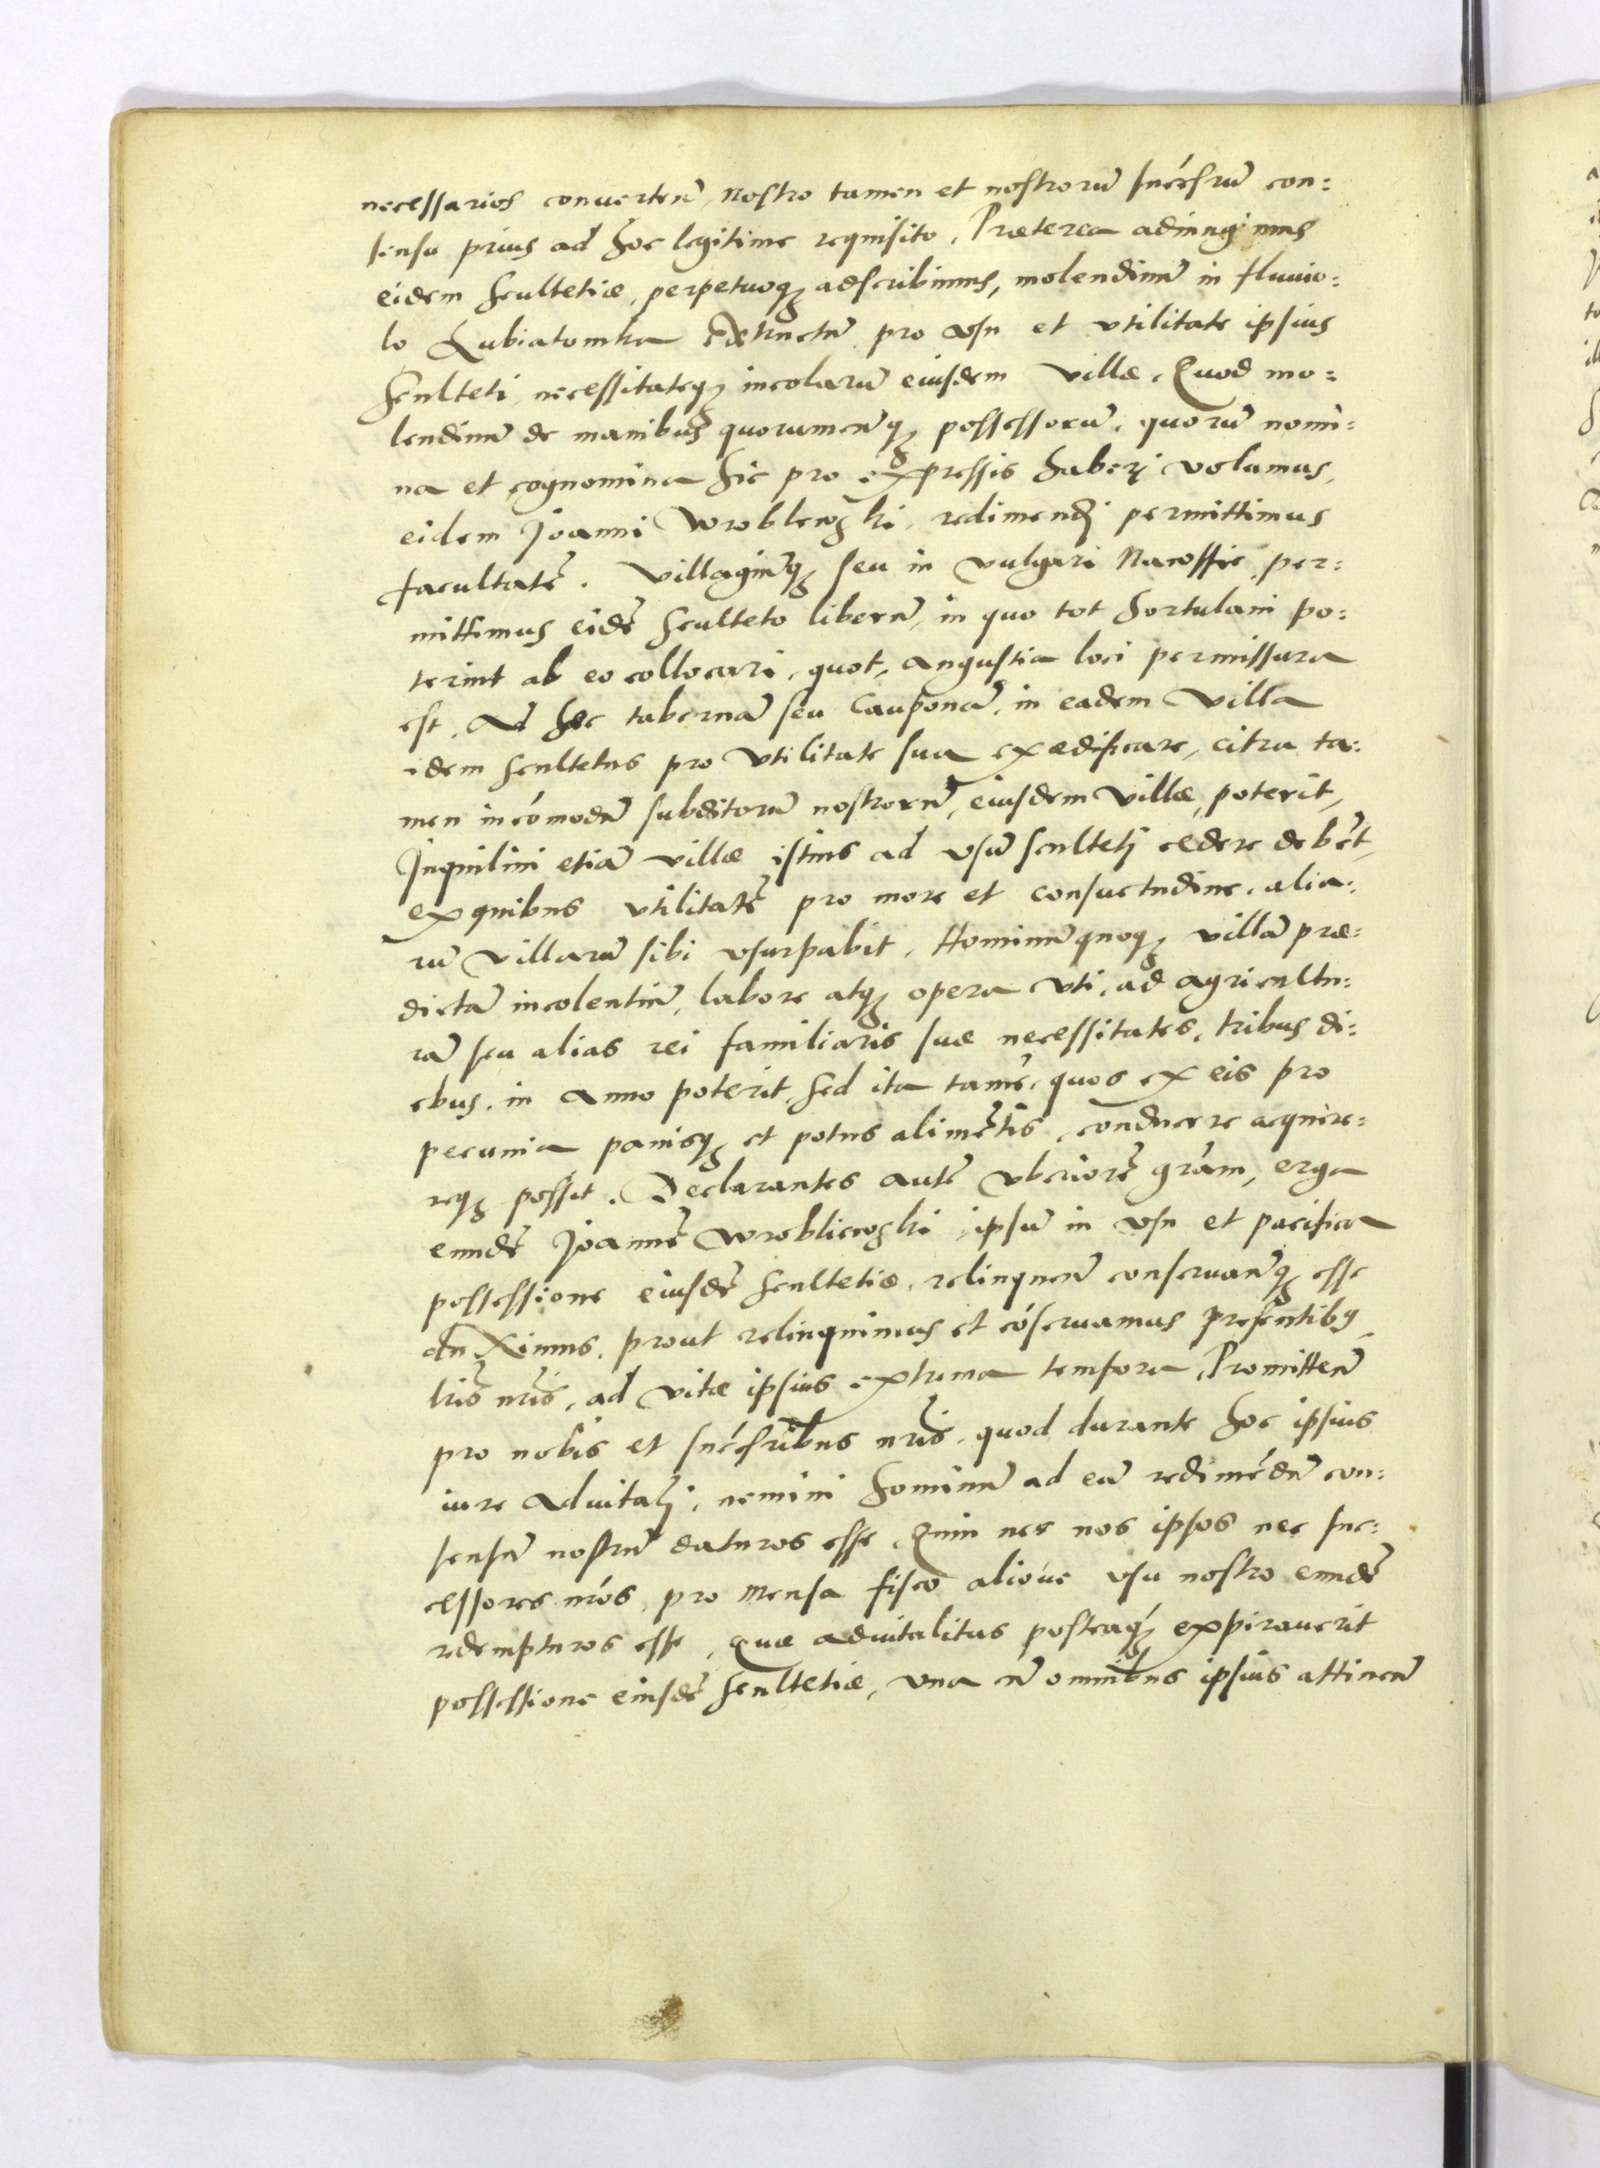 necessarios convertenð, nostro tamen et nostrorū succesrū con:
sensu prius ad hoc legitime requisito. Præterea adiungimus
eidem scultetiæ, perpetuoqꝫ adscribimus, molendinū in fluuio:
lo Lubiatowka extructū pro vsu et vtilitate ipsius
sculteti, necessitateqꝫ incolarū eiusdem villæ. Quod mo:
lendinū de manibus quorumcūqꝫ possessorū, quorū nomi:
na et cognomina hic pro expressis haberj volumus,
eidem Joanni Wroblewskj, redimendj permittimus
facultatē. Villagiūqꝫ seu in vulgari Nawssie per:
mittimus eidē sculteto liberū, in quo tot hortulani po:
terint ab eo collocari, quot, angustia loci permissura
est. Ad hæc tabernā seu cauponā, in eadem villa
idem scultetus pro vtilitate sua exædificare, citra ta:
men incōmodū subditorū nostrorū, eiusdem villæ, poterit,
Inquilini etiā villæ istius ad vsū scultetj cedere debēt,
ex quibus vtilitatē pro more et consuetudine, alia:
rū villarū sibi vsurpabit. Hominū quoqꝫ villā præ:
dictā incolentiū, labore atqꝫ opera vti, ad agricultu:
rā seu alias rei familiaris suæ necessitates, tribus di:
ebus, in anno poterit, sed ita tamē, quos ex eis pro
pecunia panisqꝫ et potus alimētis, conducere acquire:
reqꝫ possit. Declarantes autē vberiorē grām, erga
eundē Joannē Wrobliewskj, ipsū in vsu et pacifica
possessione eiusdē scultetiæ, relinquenð conservanðqꝫ esse
duximus, prout relinquimus et cōseruamus presentibꝰ
lris nris, ad vitæ ipsius extrema tempora. Promitteñ
pro nobis et succesribus nris, quod durante hoc ipsius
iure aduitalj, nemini hominū ad eā redimēdū con:
sensū nostrū daturos esse. Quin nec nos ipsos nec suc:
cessores nros, pro mensa fisco alioue vsu nostro eundē
redempturos esse. Quæ aduitalitas posteaqꝫ expirauerit
possessione eiusdē scultetiæ, vna cū omnibus ipsius attineñ